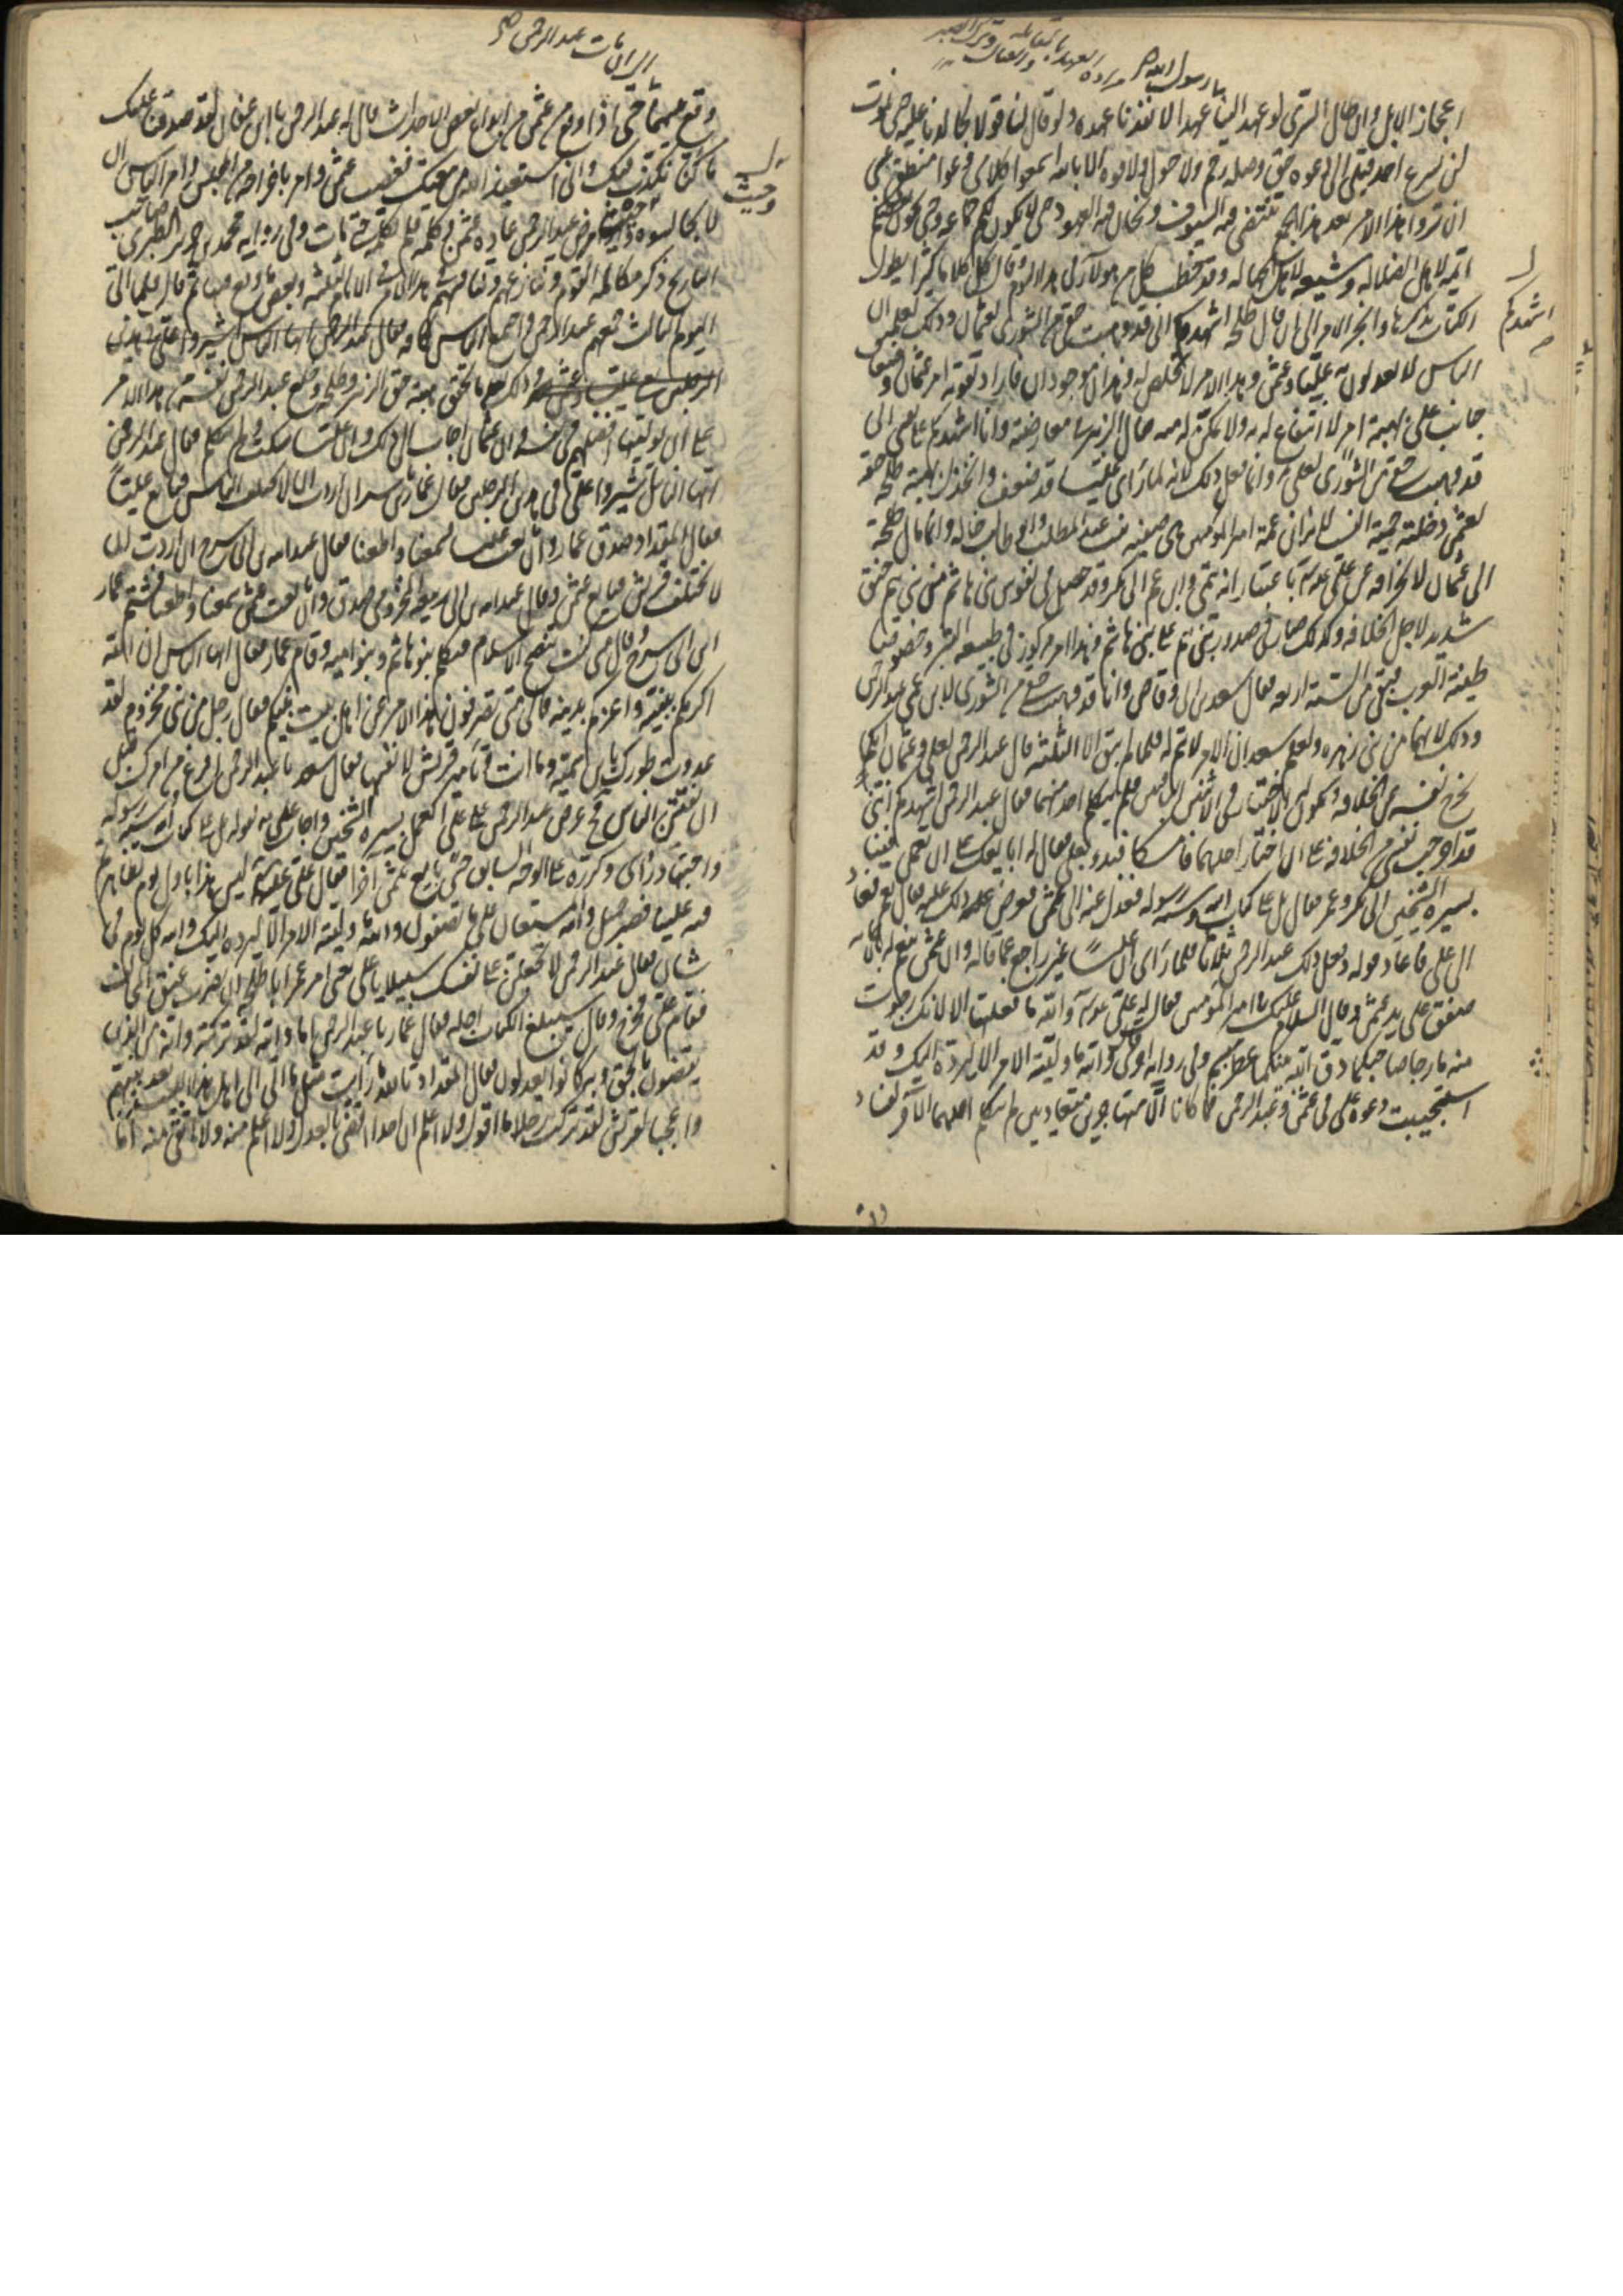 يا رسول الله
اعجاز الابل وان طال السرى لو عهد الينا عهدا لانفذنا عهده ولو قال لنا قولا لجالدنا عليه حتى نموت
لن يسرع احد قبلى الى دعوه حق وصله رحم ولا حول ولا قوه الا بالله اسمعوا كلامى وعوا منطقى عسى
ان تروا هذا الامر بعد هذا الجمع تنتضى فيه السيوف وتخان فيه العهود حتى لا يكون لكم جماعه وحتى يكون بعضكم
ائمه لاهل الضلاله وشيعه لاهل الجهاله وقد خطب كل من هولاء فى هذا اليوم وقال كل كلاما كثيرا يطول
الكتاب بذكرها وانجر الامر الى ان قال طلحه اشهدكم انى قد وهبت حقى من الشورى لعثمان وذلك لعلمه ان
الناس لا يعدلون به عليا وعثمن وهذا الامر لا تخلص له وهذان موجودان فاراد تقويه امر عثمان وضعف
جانب على بهبه امر لا انتفاع له به ولا تمكن له منه فقال الزبير معارضه وانا اشهدكم على نفسى انى
قد وهبت حقى من الشورى لعلى وانما فعل ذلك لانه لما راى عليا قد ضعف وانخذل بهبه طلحه حقه
لعثمن دخلته حميه النسب لانه ابن عمه امير المومنين وهى صفيه بنت عبد المطلب وابو طالب خاله وانما مال طلحه
الى عثمان لانحرافه عن على عه باعتبار انه تيمى وابن عم ابى بكر وقد حصل فى نفوس بنى هاشم من بنى تيم حنق
شديد لاجل الخلافه وكذلك صار فى صدور بنى تيم على بنى هاشم وهذا امر مركوز فى طبيعه البشر وخصوصا
طينه العرب فبقى من السته اربعه فقال سعد بن ابى وقاص وانا قد وهبت حقى من الشورى لابن عمى عبد الرحمن
وذلك لانهما من بنى زهره ولعلم سعد ان الامر لا يتم له فلما لم يبق الا الثلثه قال عبد الرحمن لعلى وعثمان ايكما
يخرج نفسه عن الخلافه ويكون اليه الاختيار فى الاثنين الباقيين فلم يتكلم احد منهما فقال عبد الرحمن اشهدكم اننى
قد اخرجت نفسى من الخلافه على ان اختار احدهما فامسكا فبدء بعلى فقال له ابايعك على ان تعمل فينا
بسيره الشيخين ابى بكر وعمر فقال بل على كتاب الله وسنه رسوله فعدل عنه الى عثمن فعرض عليه ذلك فقال نعم فعاد
الى على فاعاد قوله وفعل ذلك عبد الرحمن ثلاثا فلما راى ان عليا غير راجع عما قاله وان عثمن ينعم له بالاجابه
صفق على يد عثمن وقال السلام عليك يا امير المومنين فقال له على عه والله ما فعلتها الا لانك رجوت
منه ما رجا صاحبكما دق الله بينكما عطر منشم وفى روايه اخرى والله ما وليته الامر الا ليرده اليك وقد
استجيبت دعوه على فى عثمن وعبد الرحمن فما كانا الا متهاجرين متعاديين لم يكلم احدهما الاخر لفساد
اشهدكم
الى ان مات عبد الرحمن
وقع بينهما حتى اذا وقع من عثمن من انواع بعض الاحداث قال له عبد الرحمن يا ابن عفان لقد صدقنا عليك
ما كنا نكذب فيك وانى استعيذ الله من بيعتك فغضب عثمن وامر باخراجه من المجلس وامر الناس ان
لا يجالسوه وحيث مرض عبد الرحمن عاده عثمن وكلمه فلم يكلمه حتى مات وفى روايه محمد بن جرير الطبرى صاحب
التاريخ ذكر مكالمه القوم وتنازعهم وتنافسهم هذا الامر فى الايام الثلثه وبعض ما وقع منها ثم قال فلما اتى
اليوم الثالث جمعهم عبد الرحمن واجتمع الناس كافه فقال عبد الرحمن ايها الناس اشيروا على فى هذين
الرجلين على وعثمن وذلك بعد ما تحقق هبه حق الزبير وطلحه وخلع عبد الرحمن نفسه من هذا الامر
على ان يوليها افضلهم فى نفسه وان عثمان اجاب الى ذلك وان عليا سكت ولم يتكلم فقال عبد الرحمن
ايها الناس اشيروا على فى هذين الرجلين فقال عمار بن ياسر ان اردت ان لا يختلف الناس فبايع عليا
فقال المقداد صدق عمار وان بايعت عليا سمعنا واطعنا فقال عبد الله بن ابى سرح ان اردت ان
لا تختلف قريش فبايع عثمن وقال عبد الله بن ابى ربيعه المخزومى صدق وان بايعت عثمن سمعنا واطعنا فشتم عمار
ابن ابى سرح وقال متى كنت تنصح الاسلام فتكلم بنو هاشم وبنو اميه وقام عمار فقال ايها الناس ان الله
اكرمكم بنبيه واعزكم بدينه فالى متى تصرفون هذا الامر عن اهل بيت نبيكم فقال رجل من بنى مخزوم لقد
عدوت طورك يا ابن سميه وما انت وتامير قريش لانفسها فقال سعد يا عبد الرحمن افرغ من امرك قبل
ان يفتتن الناس فح عرض عبد الرحمن على على العمل بسيره الشيخين واجاب على بقوله بل على كتاب الله وسنه رسوله
واجتهاد رأى وكرره على الوجه السابق حتى بايع عثمن اخرا فقال على عه ليس هذا باول يوم تظاهرتم
فيه علينا فصبر جميل والله المستعان على ما تصفون والله ما وليته الامر الا ليرده اليك والله كل يوم فى
شان فقال عبد الرحمن لا تجعلن على نفسك سبيلا يا على يعنى امر عمر ابا طلحه ان يضرب عنق المخالف
فقام على فخرج وقال سيبلغ الكتاب اجله فقال عمار يا عبد الرحمن اما والله لقد تركته وانه من الذين
يقضون بالحق وبه كانوا يعدلون فقال المقداد تالله ما رأيت مثل ما اتى الى اهل هذا البيت بعد نبيهم
واعجبا لقريش لقد تركت رجلا ما اقول ولا اعلم ان احدا اقضى بالعدل ولا اعلم منه ولا اتقى منه اما
وحيث